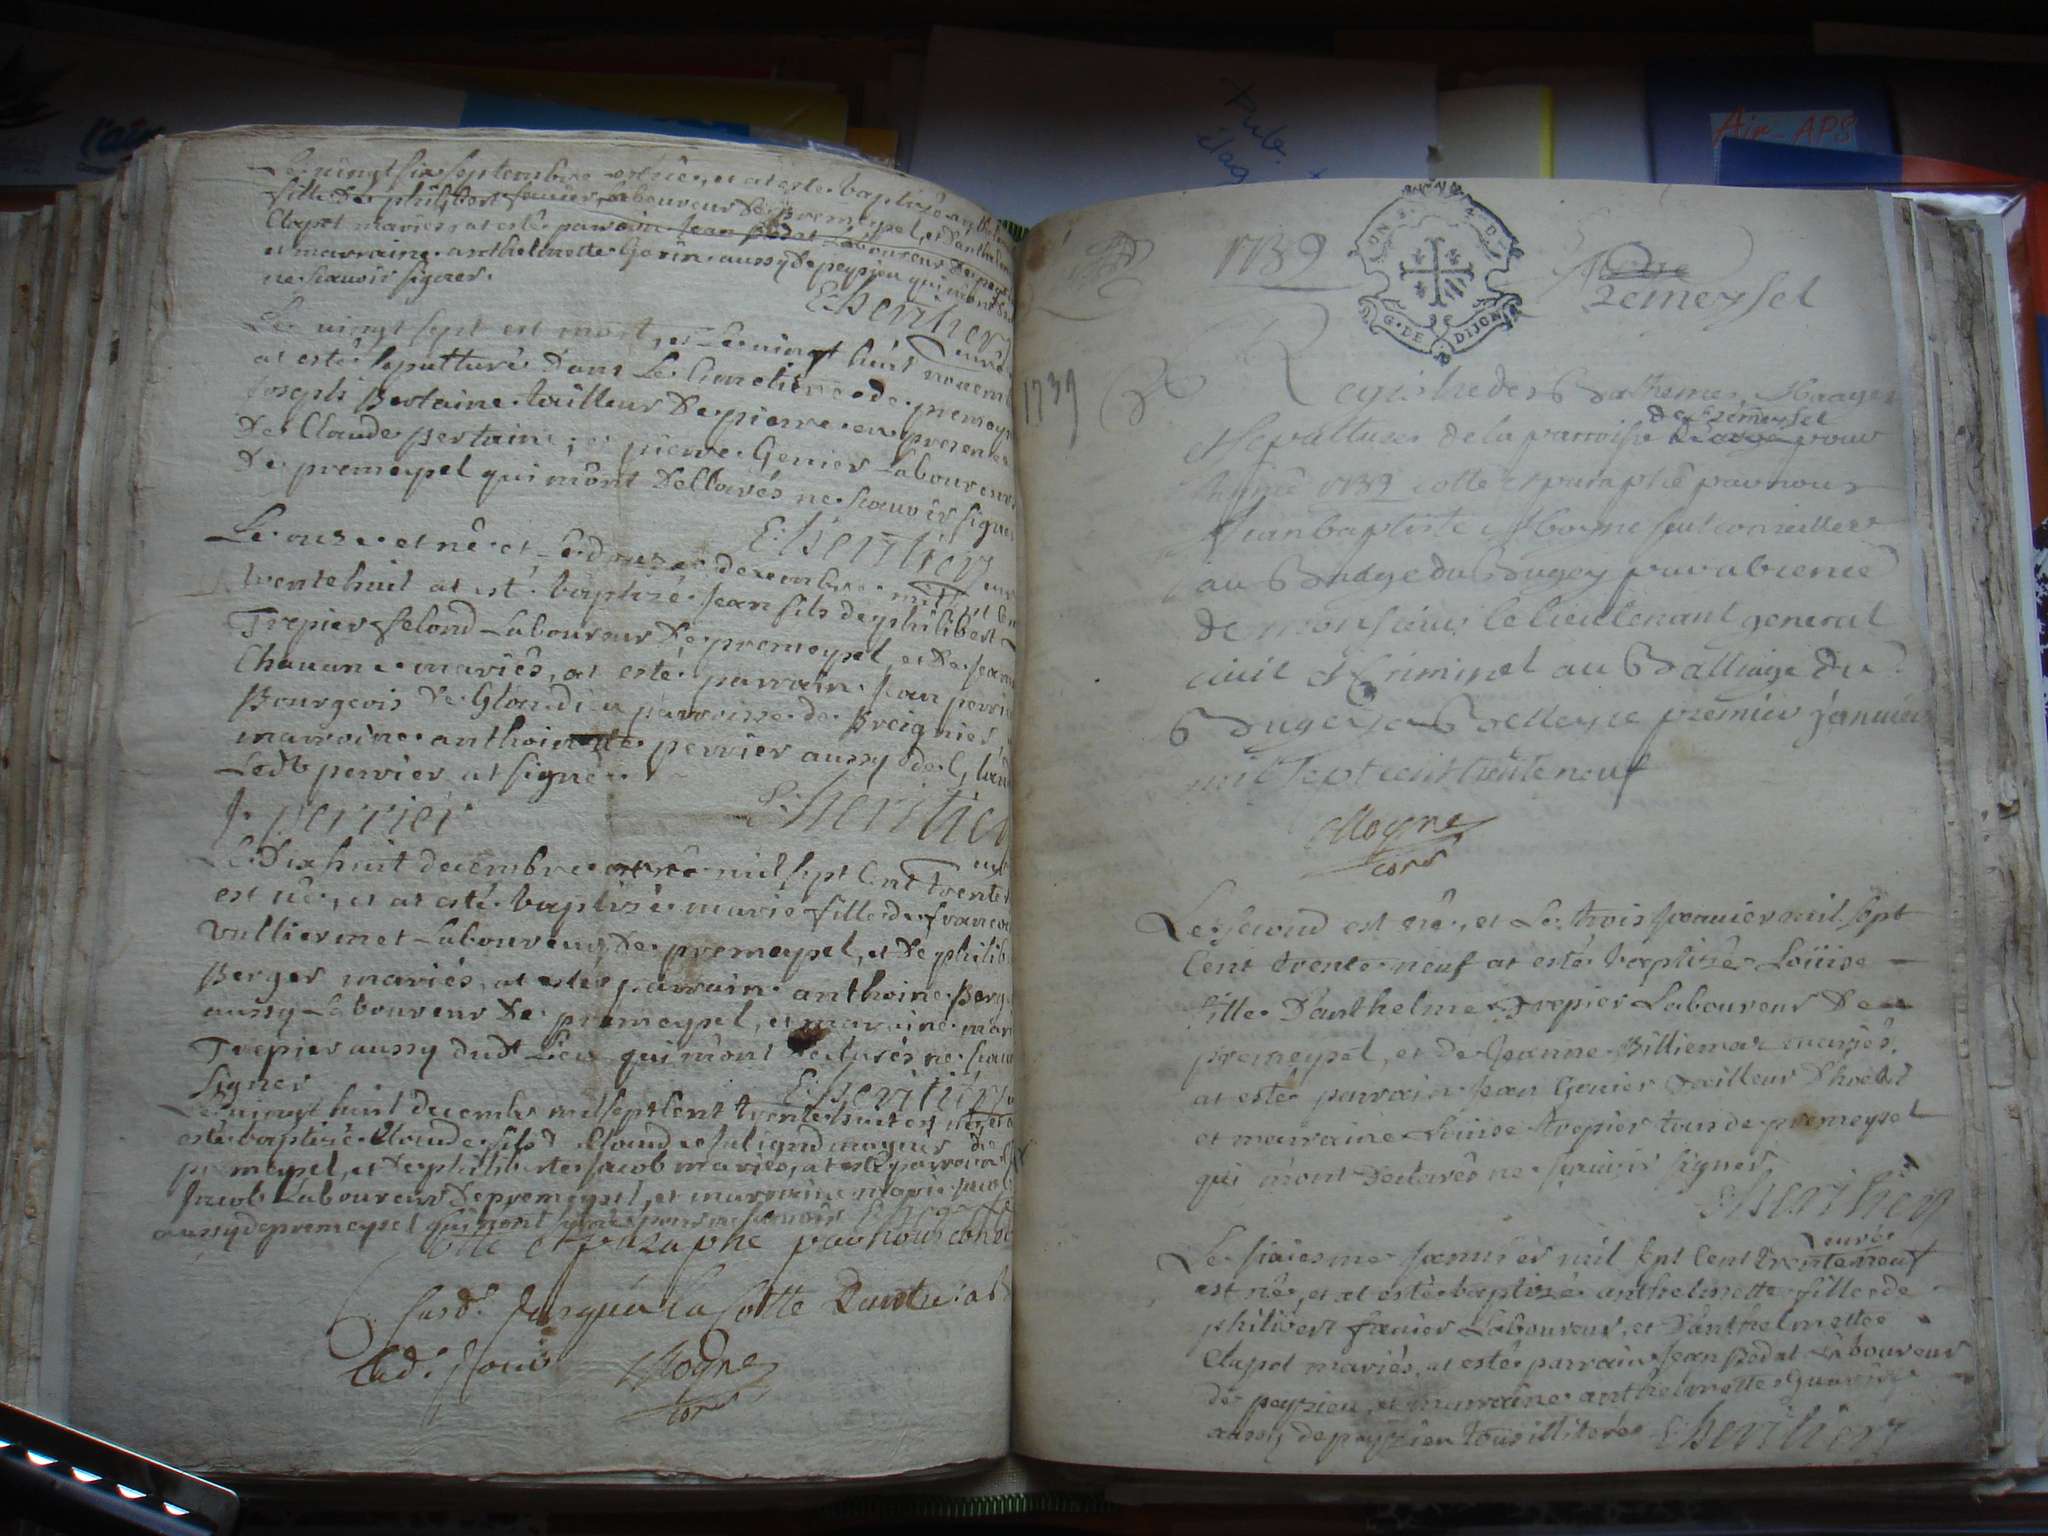 l'air
Pub.
Air-APS
Le vingt six septembre est née, et at esté baptizée
fille de philibert Laboureur de premeysel, et d'anthelmette
Clapet mariés, at esté parrain Jean Bodat Laboureur de peyzieu
et marraine anthelmette aussy de peyzieu qui m'ont
ne scauoir signer.
E: lheritier
curé
Le vingt sept est mort, et le vingt huit nouemb
at esté sepulturé dans le Cimetiere de premeys
Joseph Bertaine tailleur de pierre en presence
de Claude Bertaine, et pierre Genier Laboureurs
de premeysel qui m'ont dellarés ne scauoir signer
E: lheritier
curé
Le onze et né et le douze decembre mil sept
trente huit at esté baptizé Jean fils de philibert
Trepier selond Laboureur de premeysel, et de Jeanne
Chauanne mariés, at esté parrain Jean perrier
Bourgeois de Glandieu parroisse de Bregnier,
marraine anthoinette perrier aussy de Gland
Ledt perrier at signé.
J. perrier
E: lheritier
curé
Le Dix huit decembre mil sept Cent trente
est née, et at esté baptizée marie fille de francois
Vulliermet Laboureur de premeysel, et de philib
Berger mariés, at esté parrain anthoine Berg
aussy Laboureur de premeysel, et marraine mari
Trepier aussy dudt Lieu qui m'ont declarés ne scau
signer
E: lheritier
Le vingt huit decembre mil sept Cent trente huit est né et a
esté baptizé Claude fils d Claude magnin de
premeysel, et de philiberte Jacob mariés, at esté parrain
Jacob Laboureur de premeysel, et marraine marie Jacob
aussy de premeysel qui n'ont signés pour ne scauoir
Cotté et paraphé par nous conser
susd. Jusqu'a la Cotte
lad. Jour
Moyne
cons
1739
G. DE DIJON
Premeysel
1739
Registre des Bathemes, Mariages
de premeysel
et Sepultures de la parroisse pour
lannée 1739 cotté et paraphé par nous
Jean baptiste Moyne seul conseiller
au Bailliage du Bugey par absence
de monsieur le lieutenant general
ciuil et Criminel au Balliage du
Bugey a Belley le premier januier
mil sept cent trente neuf
Moyne
cons
Le second est née, et Le trois Januier mil sept
Cent trente neuf at esté baptizée Loüise
fille d'anthelme Trepier Laboureur de
premeysel, et de Jeanne Billiemaz mariés,
at esté parrain Jean Genier tailleur d'habit
et marraine Loüise trepier tous de premeysel
qui m'ont declarés ne scauoir signer
E: lheritier
curé
Le sixiesme Januier mil sept Cent trente neuf
est née, et at esté baptizée anthelmette fille de
philibert Laboureur, et d'anthelmette
Clapet mariés, at esté parrain Jean Bodat Laboureur
de peyzieu, et marraine anthelmette
aussy de peyzieu tous illiterés E: lheritier